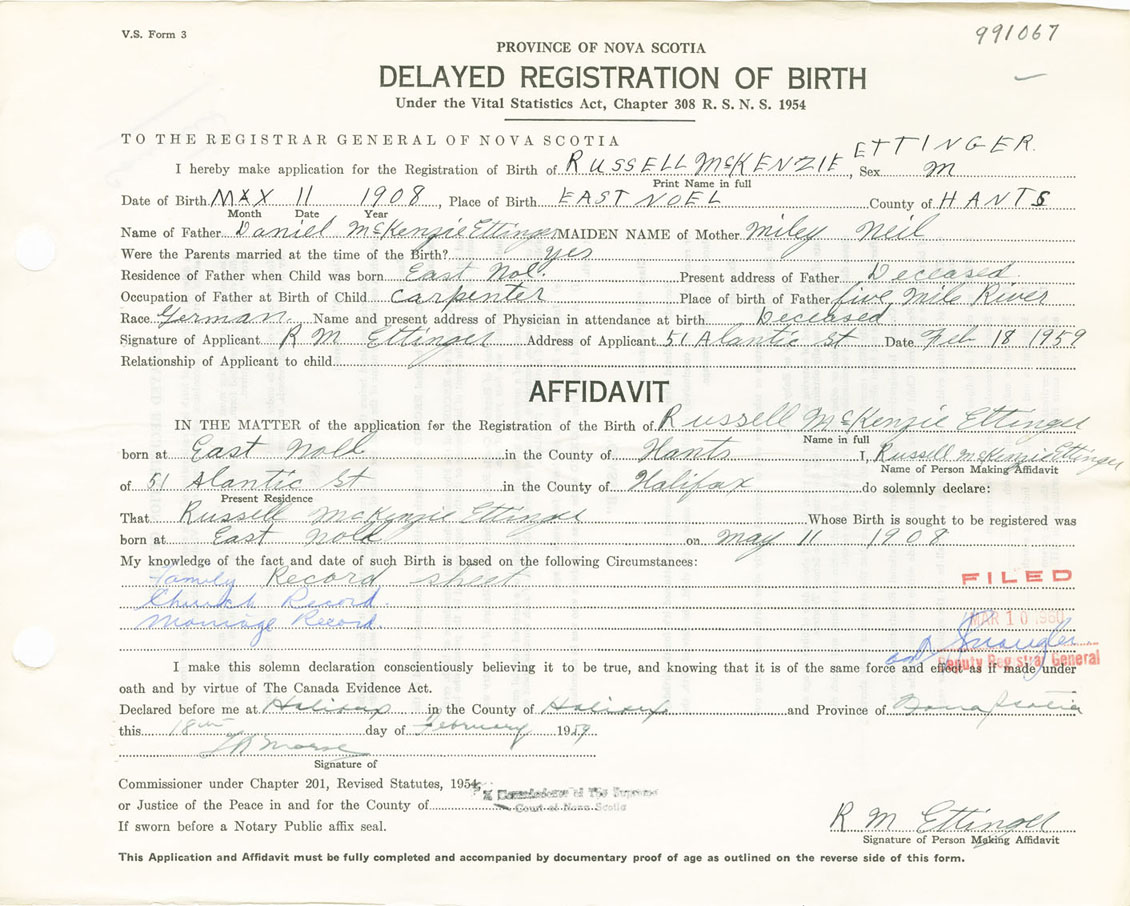 V.S. Form 3
991067
PROVINCE OF NOVA SCOTIA
DELAYED REGISTRATION OF BIRTH
Under the Vital Statistics Act, Chapter 308 R. S. N. S. 1954
TO THE REGISTRAR GENERAL OF NOVA SCOTIA
I hereby make application for the Registration of Birth of RUSSELL McKENZIE ETTINGER, Sex M
Print Name in full
Date of Birth MAY 11 1908, Place of Birth EAST NOEL County of HANTS
Month Date Year
Name of Father Daniel McKenzie Ettinger MAIDEN NAME of Mother Miley Neil
Were the Parents married at the time of the Birth? yes
Residence of Father when Child was born East Nol. Present address of Father Deceased
Occupation of Father at Birth of Child Carpenter Place of birth of Father five Mile River
Race German Name and present address of Physician in attendance at birth Deceased
Signature of Applicant R M Ettinger Address of Applicant 51 Alantic St Date Feb 18 1959
Relationship of Applicant to child
AFFIDAVIT
IN THE MATTER of the application for the Registration of the Birth of Russell McKenzie Ettinger
Name in full
born at East Noll in the County of Hants I, Russell McKenzie Ettinger
Name of Person Making Affidavit
of 51 Alantic St in the County of Halifax do solemnly declare:
Present Residence
That Russell McKenzie Ettinger Whose Birth is sought to be registered was
born at East Nold on May 11 1908
My knowledge of the fact and date of such Birth is based on the following Circumstances:
Family Record sheet
FILED
Church Record.
MAR 10 1960
Marriage Record.
Deputy Registrar General
I make this solemn declaration conscientiously believing it to be true, and knowing that it is of the same force and effect as if made under
oath and by virtue of The Canada Evidence Act.
Declared before me at Halifax in the County of Halifax and Province of Nova Scotia
this 18th day of February 1959
Signature of
Commissioner under Chapter 201, Revised Statutes, 1954,
or Justice of the Peace in and for the County of
A Commissioner of The Supreme
Court of Nova Scotia
If sworn before a Notary Public affix seal.
R M Ettinger
Signature of Person Making Affidavit
This Application and Affidavit must be fully completed and accompanied by documentary proof of age as outlined on the reverse side of this form.